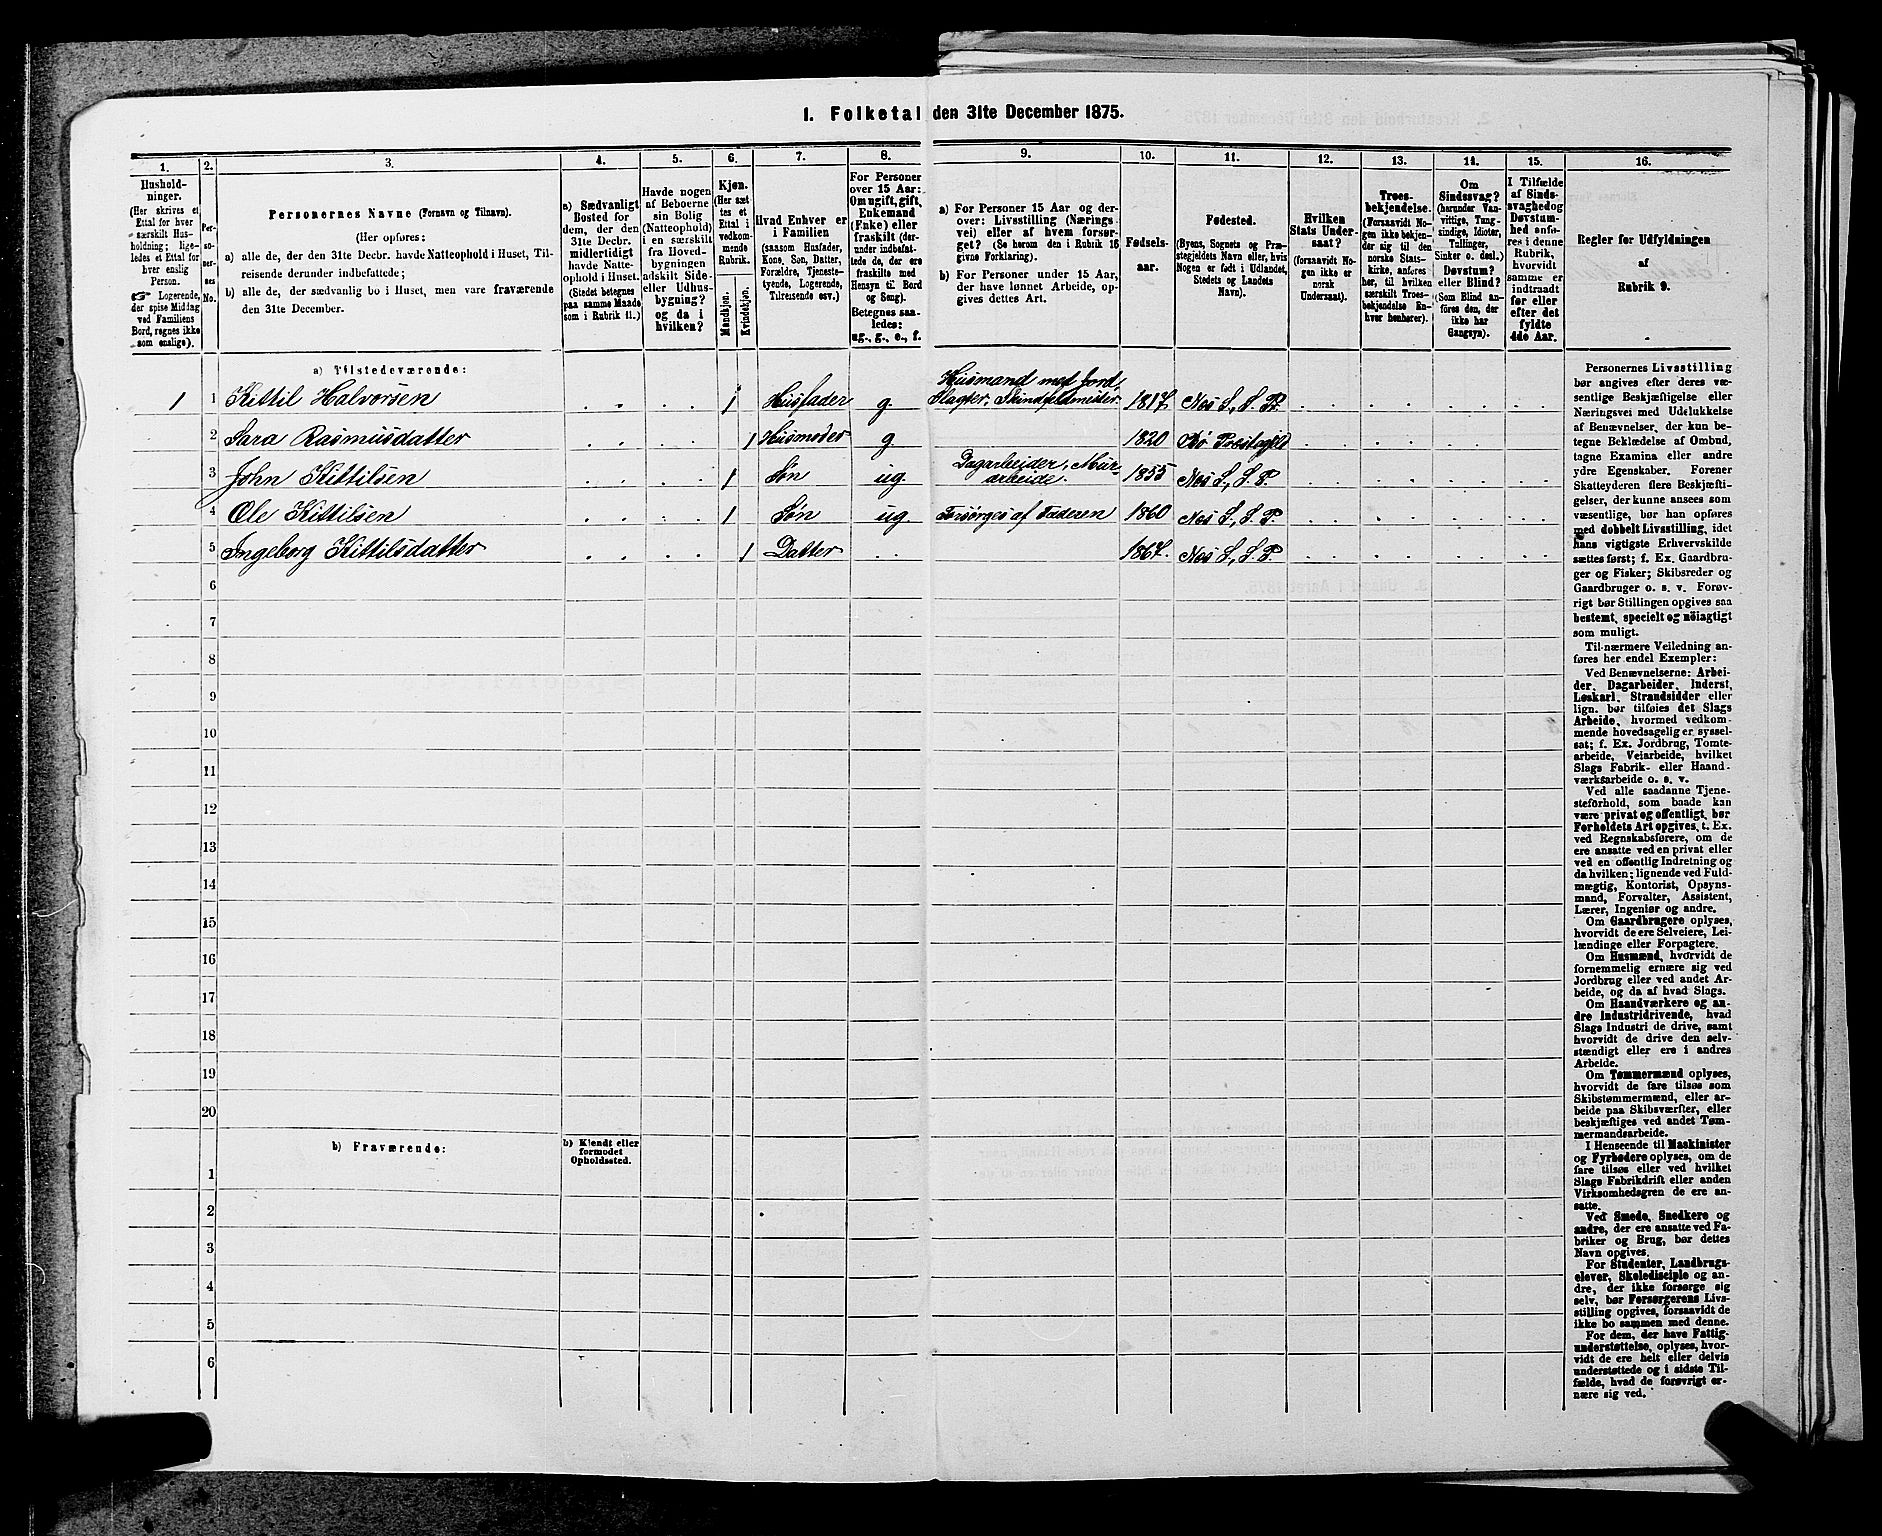 1. Folketal den 31te December 1875.
1.
2.
3.
4.
5.
6.
7.
8.
9.
10.
11.
12.
13.
14.
15.
16.
Hushold-
ninger.
(Her skrives et
Ettal for hver
særskilt Hus-
holdning; lige-
ledes et Ettal for
hver enslig
Person.
☞ Logerende,
der spise Middag
ved Familiens
Bord, regnes ikke
som enslige).
Per-
so-
ner-
nes
No.
Personernes Navne (Fornavn og Tilnavn).
(Her opføres:
a) alle de, der den 31te Decbr. havde Natteophold i Huset, Til-
reisende derunder indbefattede;
b) alle de, der sædvanlig bo i Huset, men vare fraværende
den 31te December.
a) Sædvanligt
Bosted for
dem, der den
31te Decbr.
midlertidigt
havde Natte-
ophold i Huset.
(Stedet betegnes
paa samme Maade
som i Rubrik 11.)
Havde nogen
af Beboerne
sin Bolig
(Natteophold)
i en særskilt
fra Hoved-
bygningen
adskilt Side-
eller Udhus-
bygning?
og da i
hvilken?
Kjøn.
(Her sæt-
tes et
Ettal i
vedkom-
mende
Rubrik.
Mandkjøn.
Kvindekjøn.
Hvad Enhver er
i Familien
(saasom Husfader,
Kone, Søn, Datter,
Forældre, Tjeneste-
tyende, Logerende,
Tilreisende osv.)
For Personer
over 15 Aar:
Om ugift, gift,
Enkemand
(Enke) eller
fraskilt (der-
under indbefat-
tede de, der ere
fraskilte med
Hensyn til Bord
og Seng).
Betegnes saa-
ledes:
ug., g., e., f.
a) For Personer 15 Aar og der-
over: Livsstilling (Nærings-
vei) eller af hvem forsør-
get? (Se herom den i Rubrik 16
givne Forklaring).
b) For Personer under 15 Aar,
der have lønnet Arbeide, op-
gives dettes Art.
Fødsels-
aar.
Fødested.
(Byens, Sognets og Præ-
stegjeldets Navn eller, hvis
Nogen er født i Udlandet,
Stedets og Landets
Navn).
Hvilken
Stats Under-
saat?
(forsaavidt No-
gen ikke er
norsk
Undersaat).
Troes-
bekjendelse.
(Forsaavidt No-
gen ikke bekjen-
der sig til den
norske Stats-
kirke, anføres
her, til hvilken
særskilt Troes-
bekjendelse En-
hver henhører).
Om
Sindssvag?
(herunder Van-
vittige, Tung-
sindige, Idioter,
Tullinger,
Sinker o. desl.)
Døvstum?
eller Blind?
(Som Blind an-
føres den, der
ikke har
Gangsyn).
I Tilfælde
af Sinds-
svaghed og
Døvstum-
hed anfø-
res i denne
Rubrik,
hvorvidt
samme er
indtraadt
før eller
efter det
fyldte
4de Aar.
Regler for Udfyldningen
af
Rubrik 9.
a) Tilstedeværende:
1 1 Kittil Halvorsen 1 Husfader g Husmand med Jord,
Slagter, Skindfeldmester 1817. Nes S., S. P.
2 Sara Rasmusdatter 1 Husmoder g 1820 Bø Præstegjeld
3 John Kittilsen 1 Søn ug. Dagarbeider, Mur-
arbeide. 1855 Nes S., S. P.
4 Ole Kittilsen 1 Søn ug Forsørges af Faderen 1860 Nes S., S. P.
5 Ingeborg Kittilsdatter 1 Datter 1867. Nes S., S. P.
6
7
8
9
10
11
12
13
14
15
16
17
18
19
20
b) Fraværende:
b) Kjendt eller
formodet
Opholdssted.
1
2
3
4
5
6
Personernes Livsstilling
bør angives efter deres væ-
sentlige Beskjæftigelse eller
Næringsvei med Udelukkelse
af Benævnelser, der kun be-
tegne Beklædelse af Ombud,
tagne Examina eller andre
ydre Egenskaber. Forener
Skatteyderen flere Beskjæfti-
gelser, der kunne ansees som
væsentlige, bør han opføres
med dobbelt Livsstilling, idet
hans vigtigste Erhvervskilde
sættes først; f. Ex. Gaardbru-
ger og Fisker; Skibsreder og
Gaardbruger o. s. v. Forøv-
rigt bør Stillingen opgives saa
bestemt, specielt og nöiagtigt
som muligt.
Til nærmere Veiledning an-
føres her endel Exempler:
Ved Benævnelserne: Arbei-
der, Dagarbeider, Inderst,
Løskarl, Strandsidder eller
lign. bør tilføies det Slags
Arbeide, hvormed vedkom-
mende hovedsagelig er syssel-
sat; f. Ex. Jordbrug, Tomte-
arbeide, Veiarbeide, hvilket
Slags Fabrik- eller Haand-
værksarbeide o. s. v.
Ved alle saadanne Tjene-
steforhold, som baade kan
være privat og offentligt, bør
Forholdets Art opgives, t. Ex.
ved Regnskabsførere, om de
ere ansatte ved en privat eller
ved en offentlig Indretning og
da hvilken; lignende ved Fuld-
mægtig, Kontorist, Opsyns-
mand, Forvalter, Assistent,
Lærer, Ingeniør og andre.
Om Gaardbrugere oplyses,
hvorvidt de ere Selveiere, Lei-
lændinge eller Forpagtere.
Om Husmænd, hvorvidt de
fornemmelig ernære sig ved
Jordbrug eller ved andet Ar-
beide, og da af hvad Slags.
Om Haandværkere og an-
dre Industridrivende, hvad
Slags Industri de drive, samt
hvorvidt de drive den selv-
stændigt eller ere i andres
Arbeide.
Om Tømmermænd oplyses,
hvorvidt de fare tilsøs som
Skibstømmermænd, eller ar-
beide paa Skibsværfter, eller
beskjæftiges ved andet Tøm-
mermandsarbeide.
I Henseende til Maskinister
og Fyrbødere oplyses, om de
fare tilsøs eller ved hvilket
Slags Fabrikdrift eller anden
Virksomhedsgren de ere an-
satte.
Ved Smede, Snedkere og
andre, der ere ansatte ved Fa-
briker og Brug, bør dettes
Navn opgives.
For Studenter, Landbrugs-
elever, Skoledisciple og an-
dre, der ikke forsørge sig
selv, bør Forsørgerens Livs-
stilling opgives, forsaavidt de
ikke bo sammen med denne.
For dem, der have Fattig-
understøttelse, oplyses, hvor-
vidt de ere helt eller delvis
understøttede og i sidste Til-
fælde, hvad de forøvrigt er-
nære sig ved.